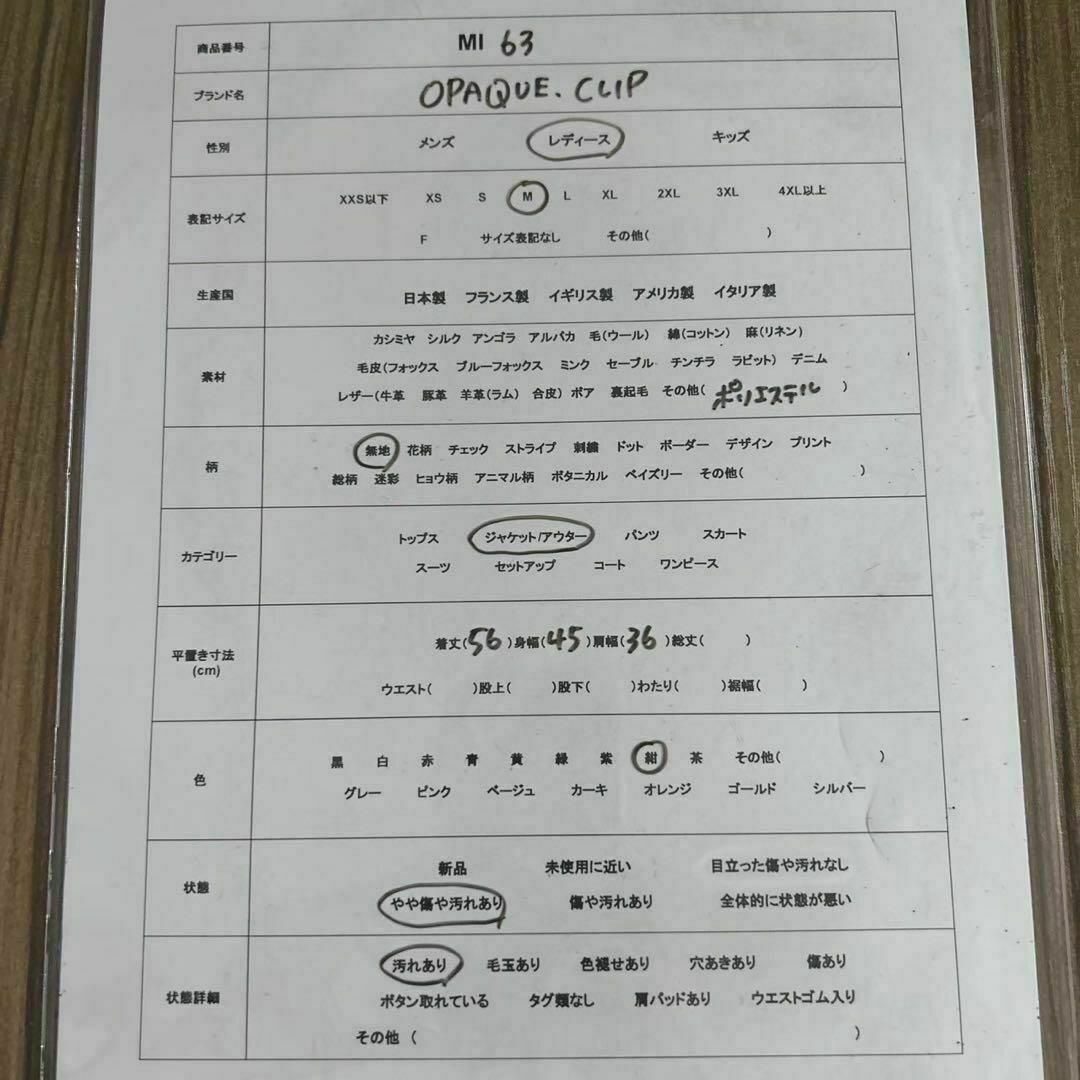 商品番号 MI 63
ブランド名 OPAQUE. CLIP
性別 メンズ レディース キッズ
表記サイズ XXS以下 XS S M L XL 2XL 3XL 4XL以上
F サイズ表記なし その他( )
生産国 日本製 フランス製 イギリス製 アメリカ製 イタリア製
素材 カシミヤ シルク アンゴラ アルパカ 毛(ウール) 綿(コットン) 麻(リネン)
毛皮(フォックス ブルーフォックス ミンク セーブル チンチラ ラビット) デニム
レザー(牛革 豚革 羊革(ラム) 合皮) ボア 裏起毛 その他( ポリエステル )
柄 無地 花柄 チェック ストライプ 刺繍 ドット ボーダー デザイン プリント
総柄 迷彩 ヒョウ柄 アニマル柄 ボタニカル ペイズリー その他( )
カテゴリー トップス ジャケット/アウター パンツ スカート
スーツ セットアップ コート ワンピース
平置き寸法 (cm) 着丈(56)身幅(45)肩幅(36)総丈( )
ウエスト( )股上( )股下( )わたり( )裾幅( )
色 黒 白 赤 青 黄 緑 紫 紺 茶 その他( )
グレー ピンク ベージュ カーキ オレンジ ゴールド シルバー
状態 新品 未使用に近い 目立った傷や汚れなし
やや傷や汚れあり 傷や汚れあり 全体的に状態が悪い
状態詳細 汚れあり 毛玉あり 色褪せあり 穴あきあり 傷あり
ボタン取れている タグ類なし 肩パッドあり ウエストゴム入り
その他 ( )